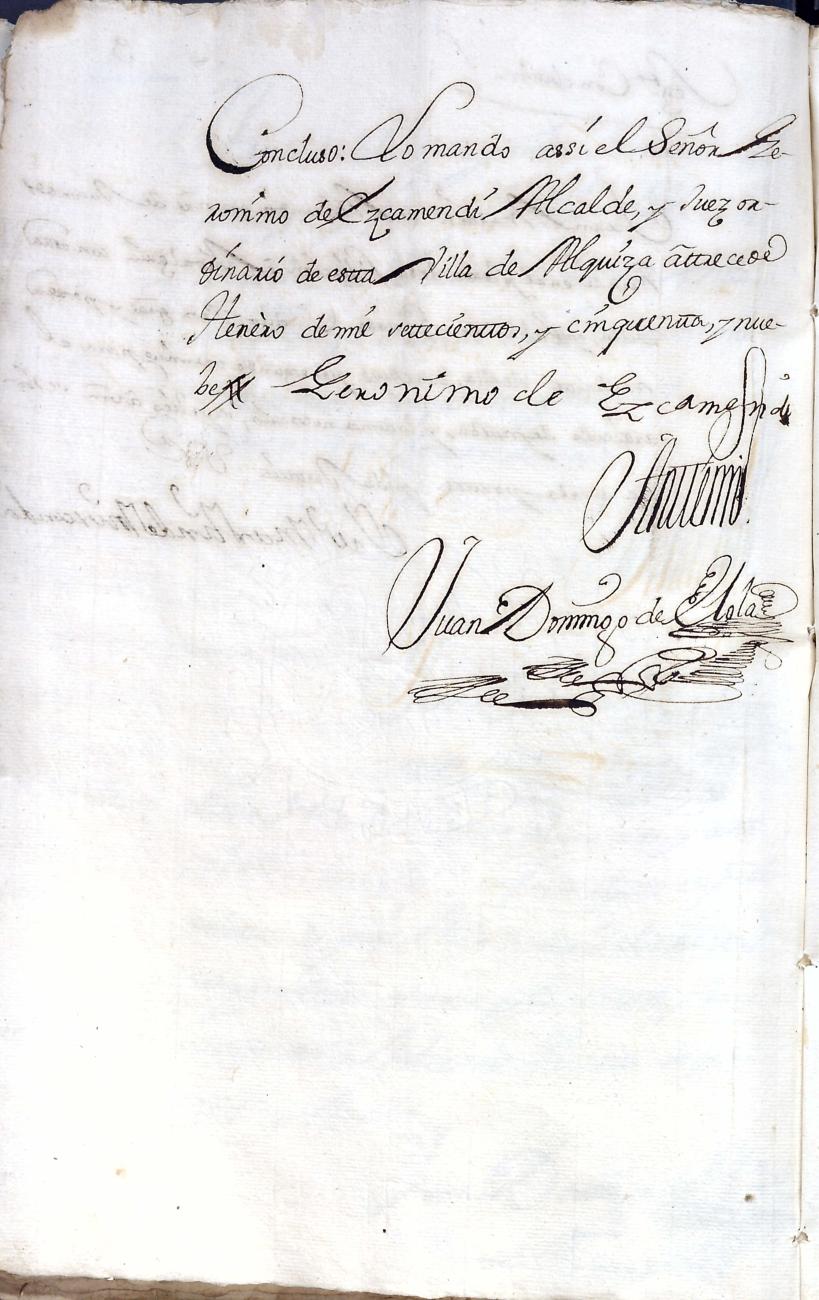 Concluso: Lo mando assi el Señor Ge-
ronimo de Ezcamendi Alcalde, y Juez or-
dinario de estta Villa de Alquiza â ttrece de
Henèro de mil settecienttos, y cinquentta, y nue-
be
Geronimo de Ezcamendi
Antemi
Juan Domingo de Elola